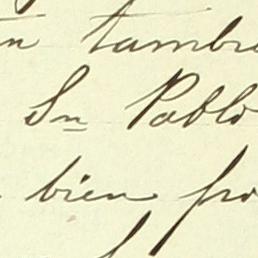 n tambie
Sn Pablo
bien pro